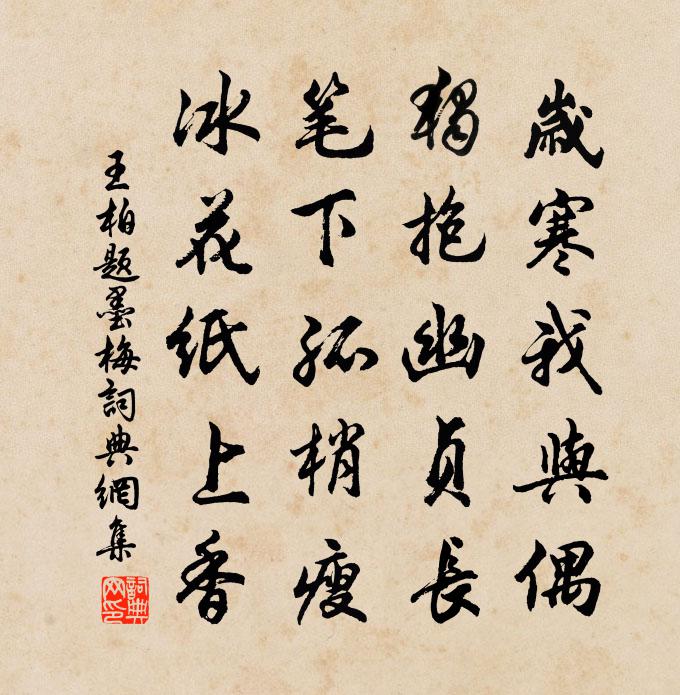 歲寒我與偶
獨抱幽貞長
笔下孤梢瘦
冰花紙上香
王柏题墨梅詞典網集
詞典網印